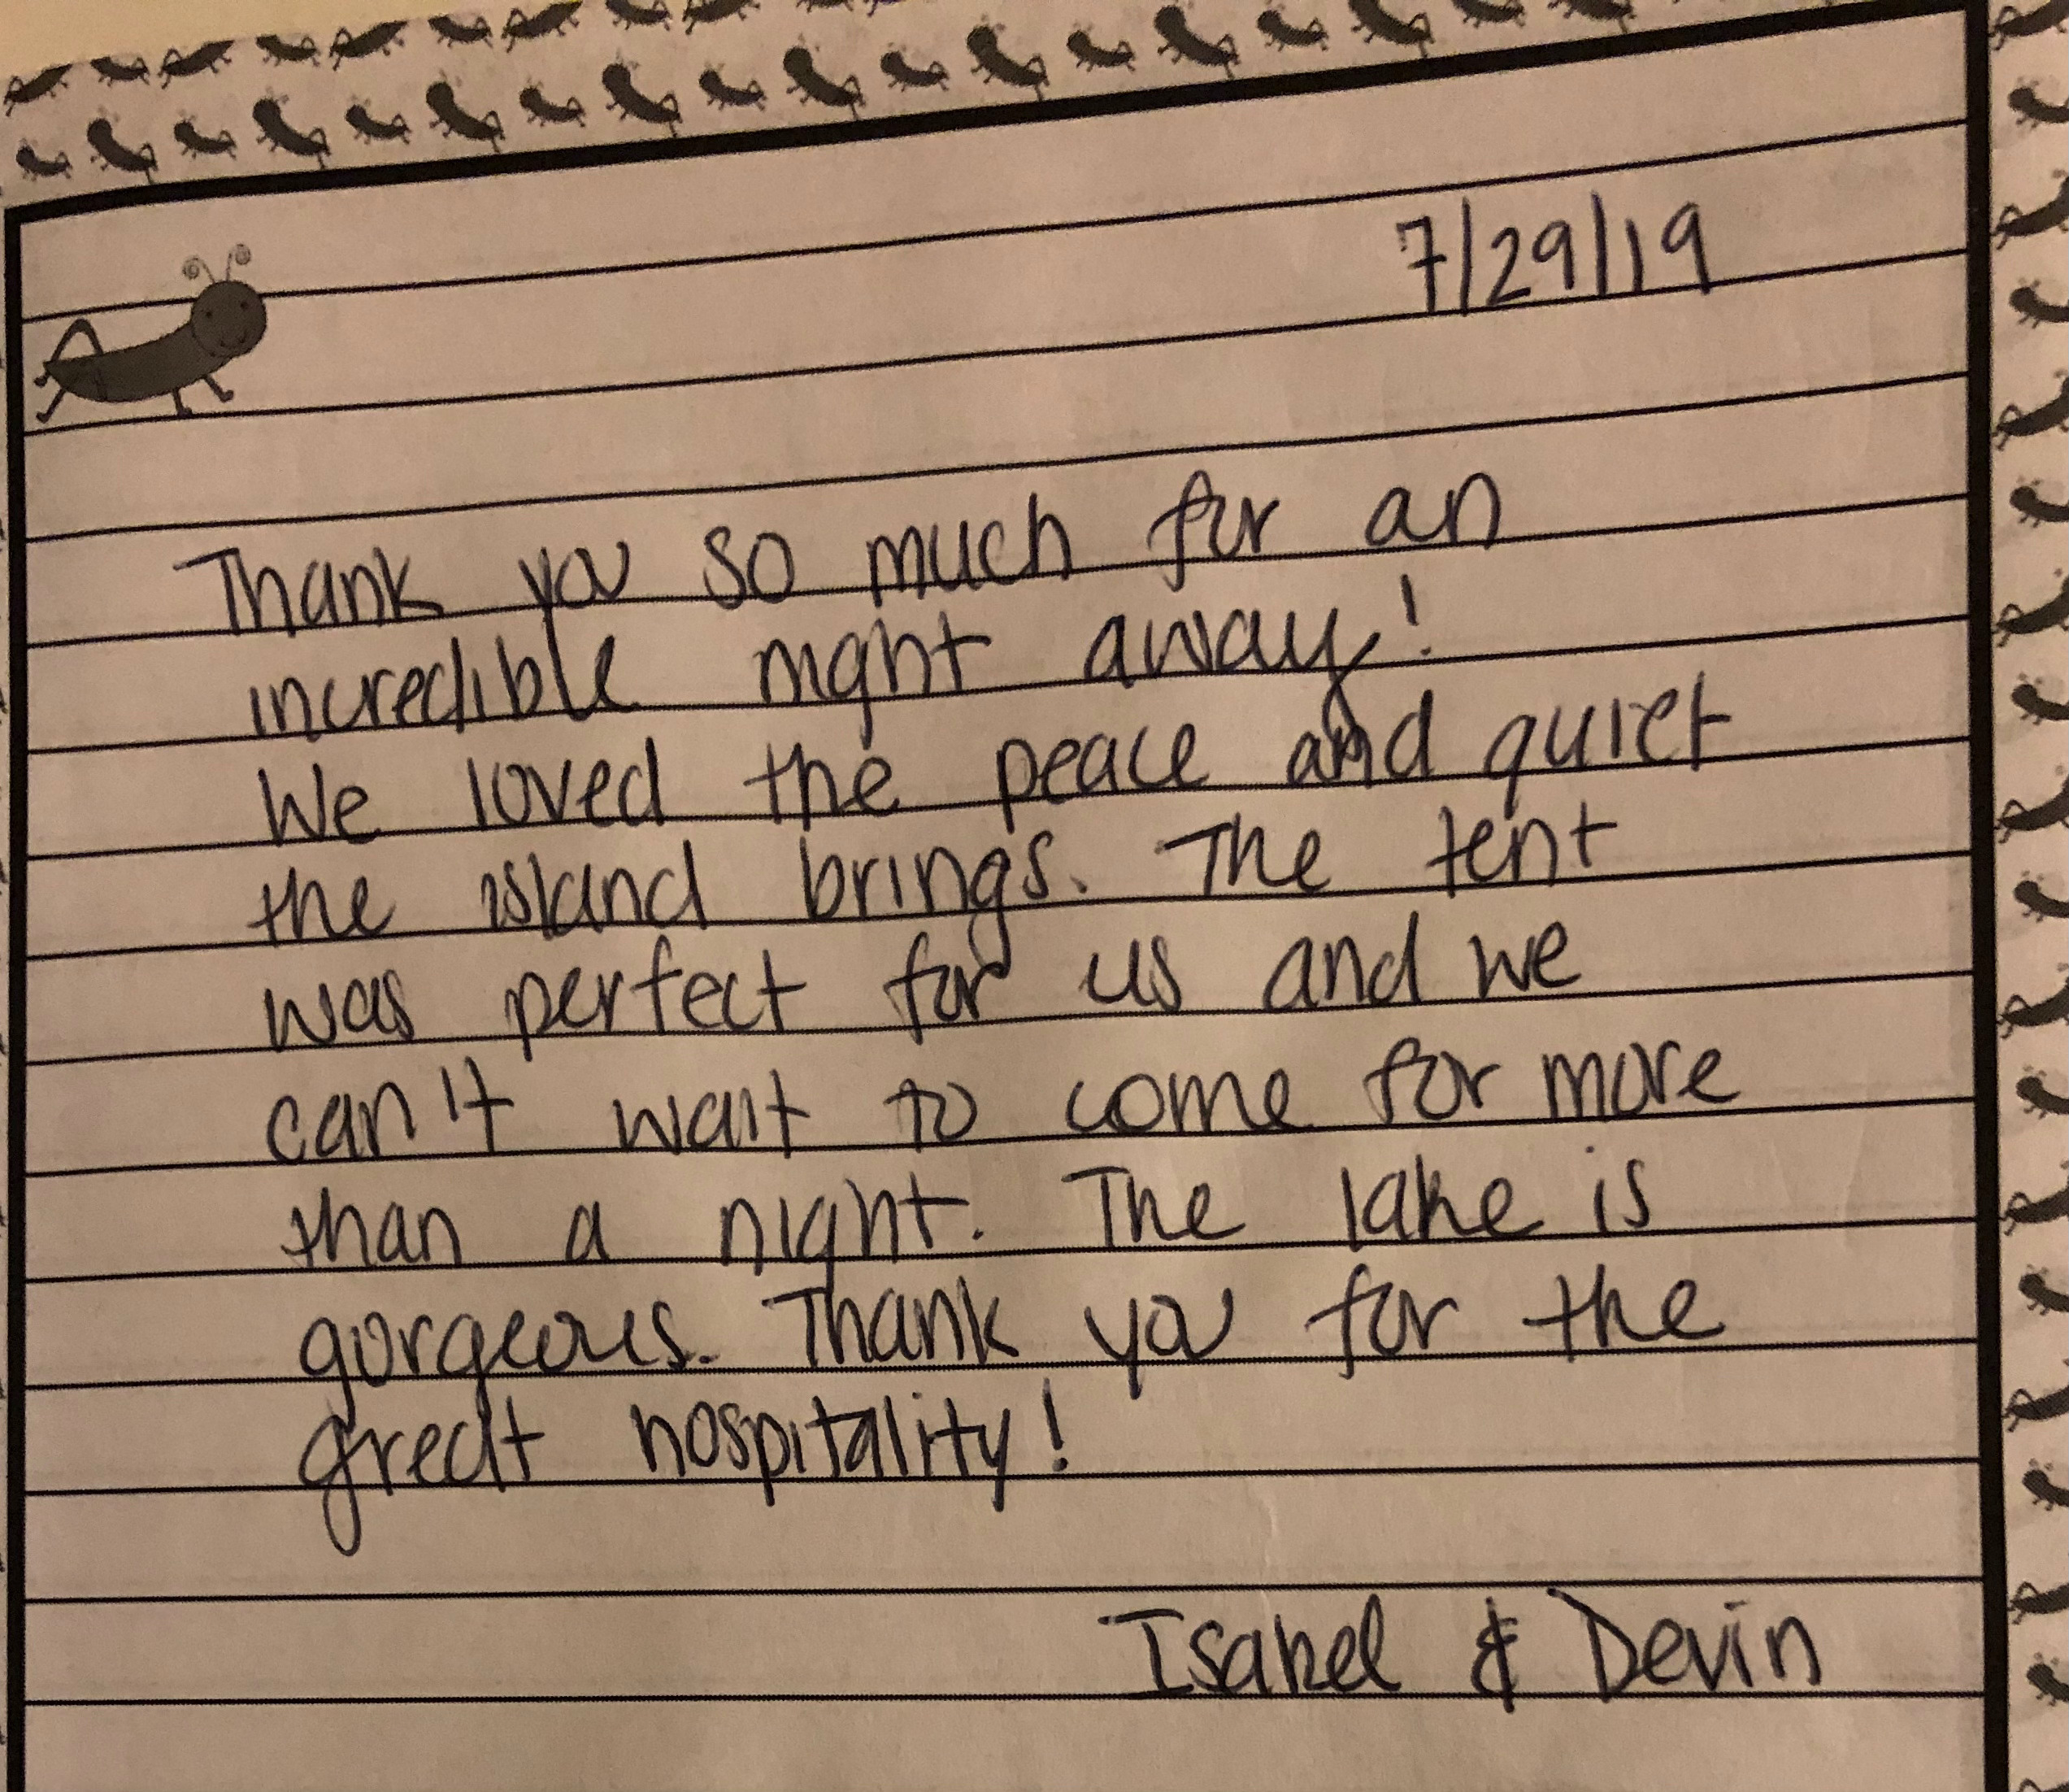 7/29/19
Thank you so much for an
incredible night away!
We loved the peace and quiet
the island brings. The tent
was perfect for us and we
can't wait to come for more
than a night. The lake is
gorgeous. Thank you for the
great hospitality!
Isabel & Devin